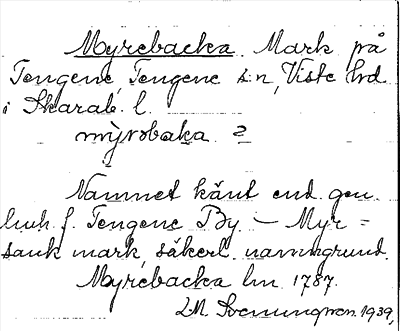 Myrebacka Mark på
Tengene, Tengene sn, Viste hd
i Skarab. l.
myrəbaka ?
Namnet känt end. gen.
lmh f. Tengene By — Myr =
sank mark, säkerl. namngrund.
Myrebacka lm 1787.
LM. Svenungsson. 1939,